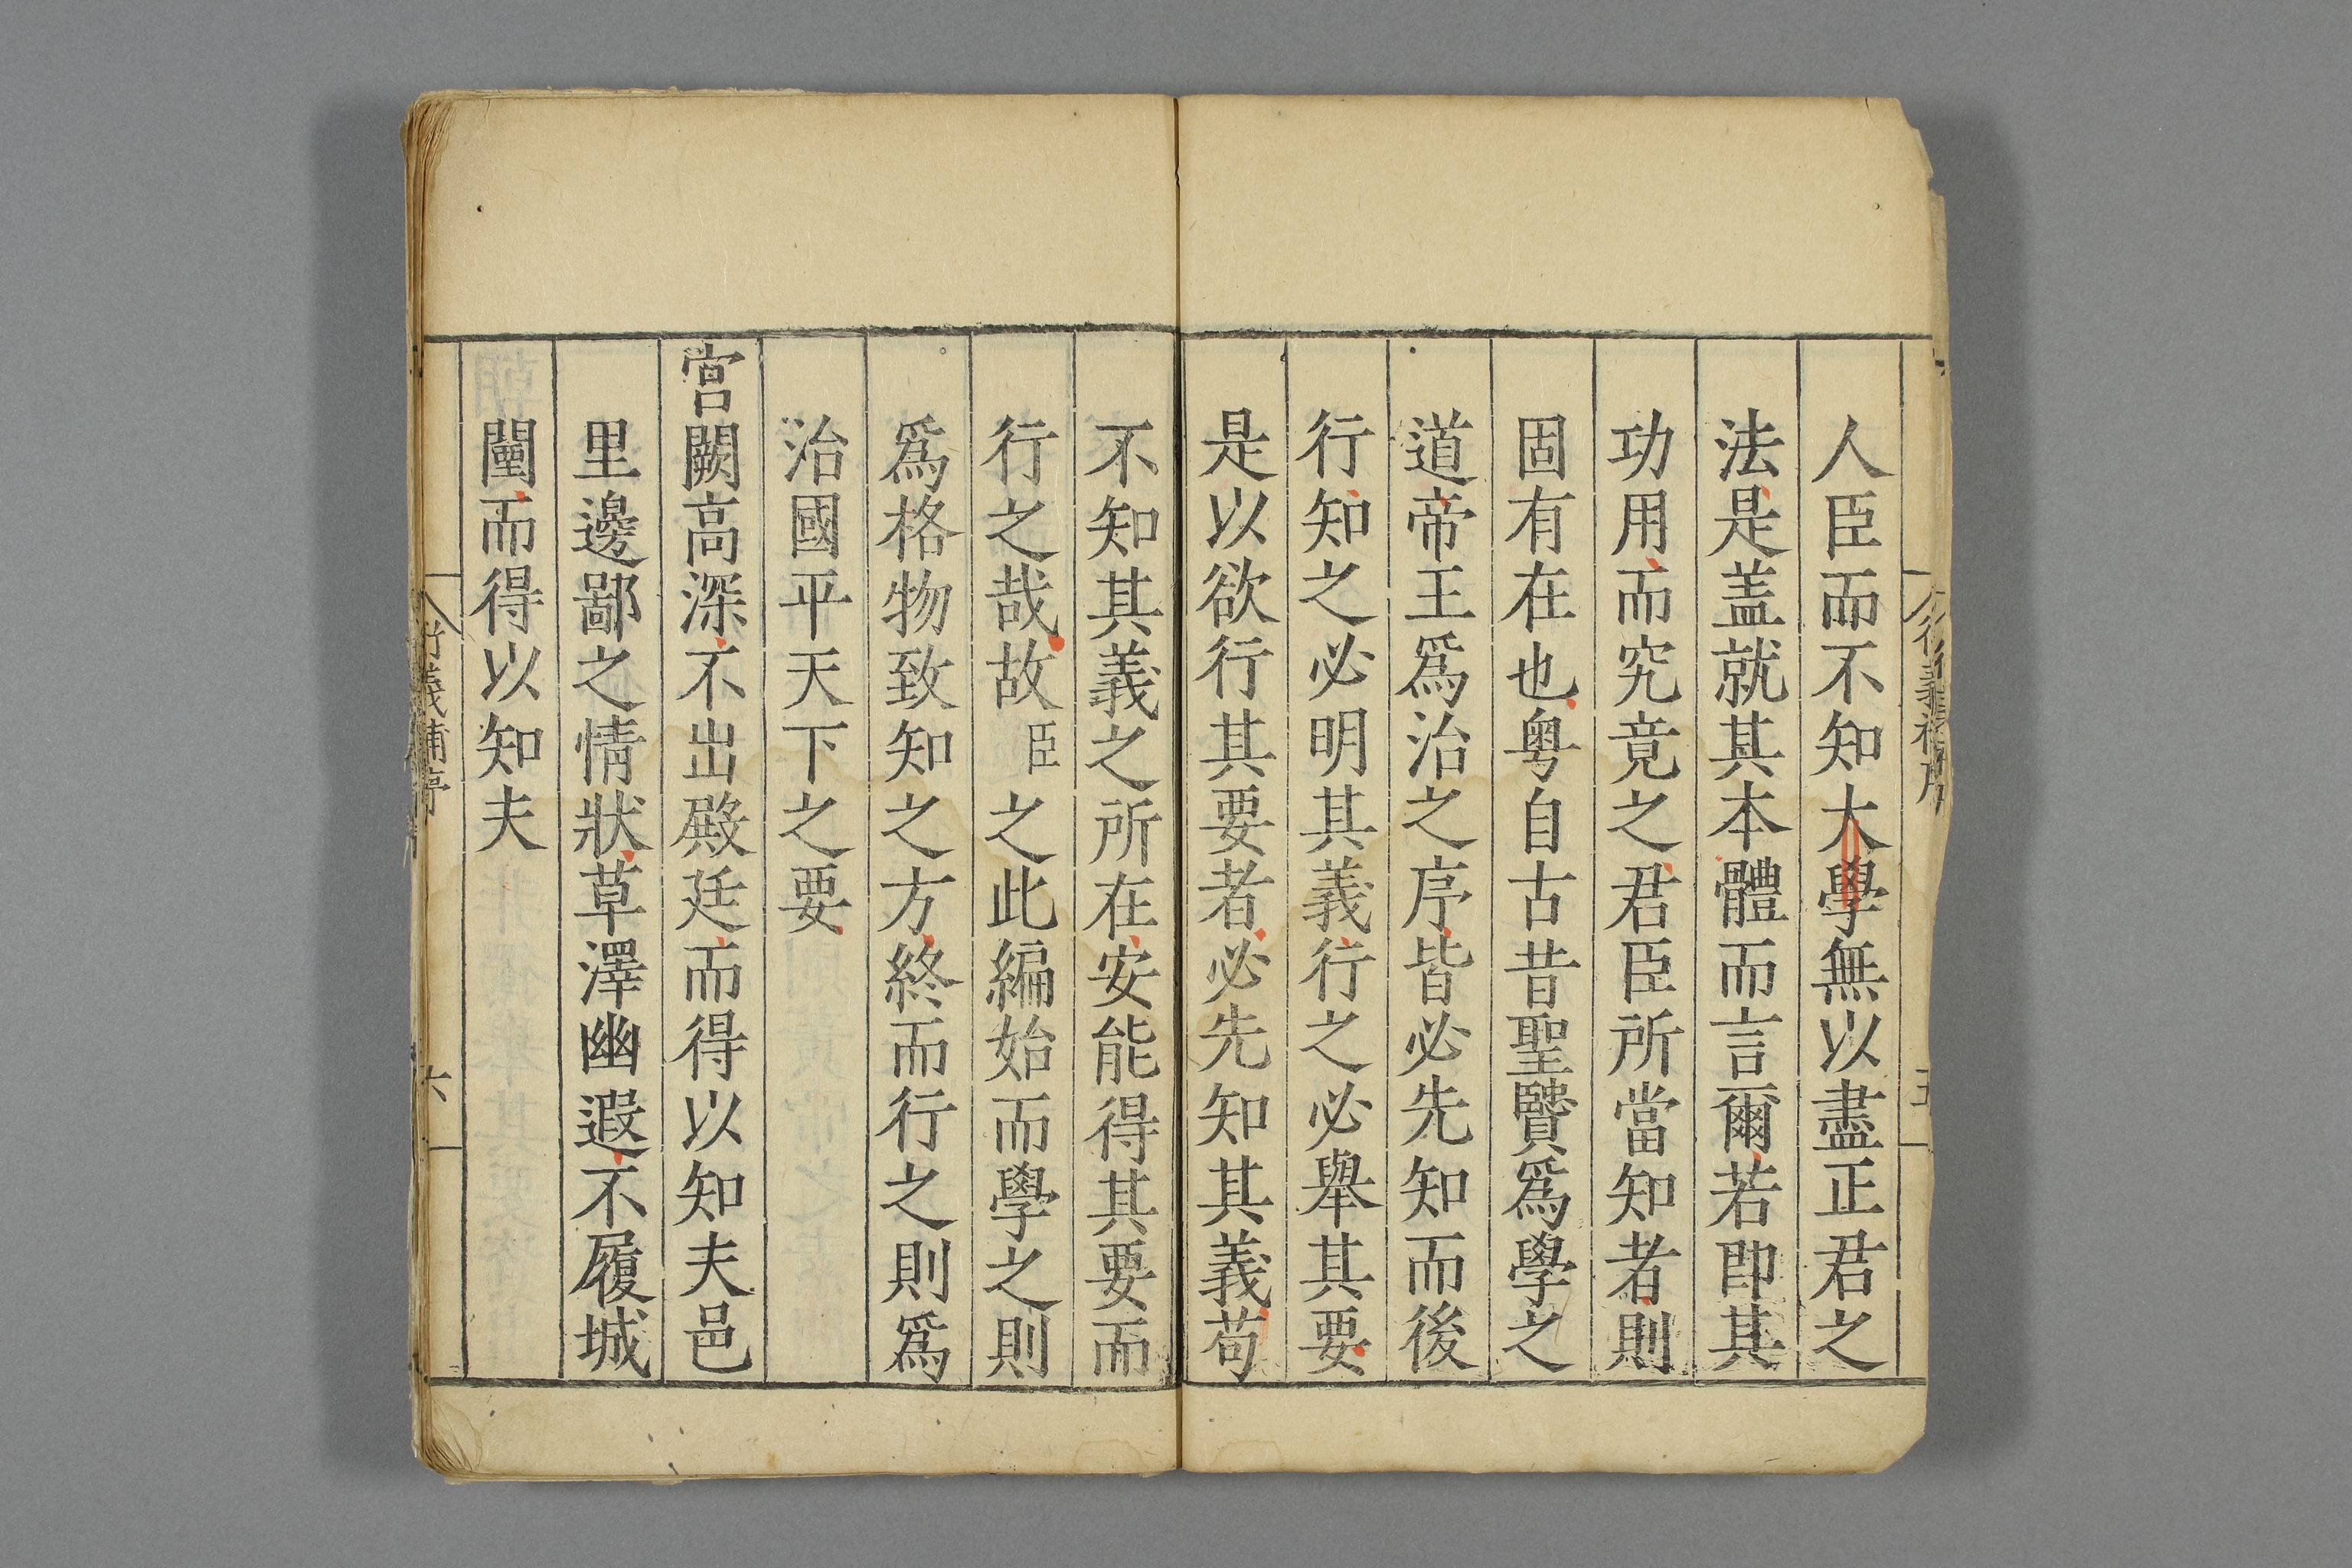 人臣而不知大學無以盡正君之
法是盖就其本體而言爾若即其
功用而究竟之君臣所當知者則
固有在也粤自古昔聖賢爲學之
道帝王爲治之序皆必先知而後
行知之必明其義行之必舉其要
是以欲行其要者必先知其義苟
不知其義之所在安能得其要而
行之哉故臣之此編始而學之則
爲格物致知之方終而行之則爲
治國平天下之要
宮闕高深不出殿廷而得以知夫邑
里邊鄙之情狀草澤幽遐不履城
闉而得以知夫
義補序
六